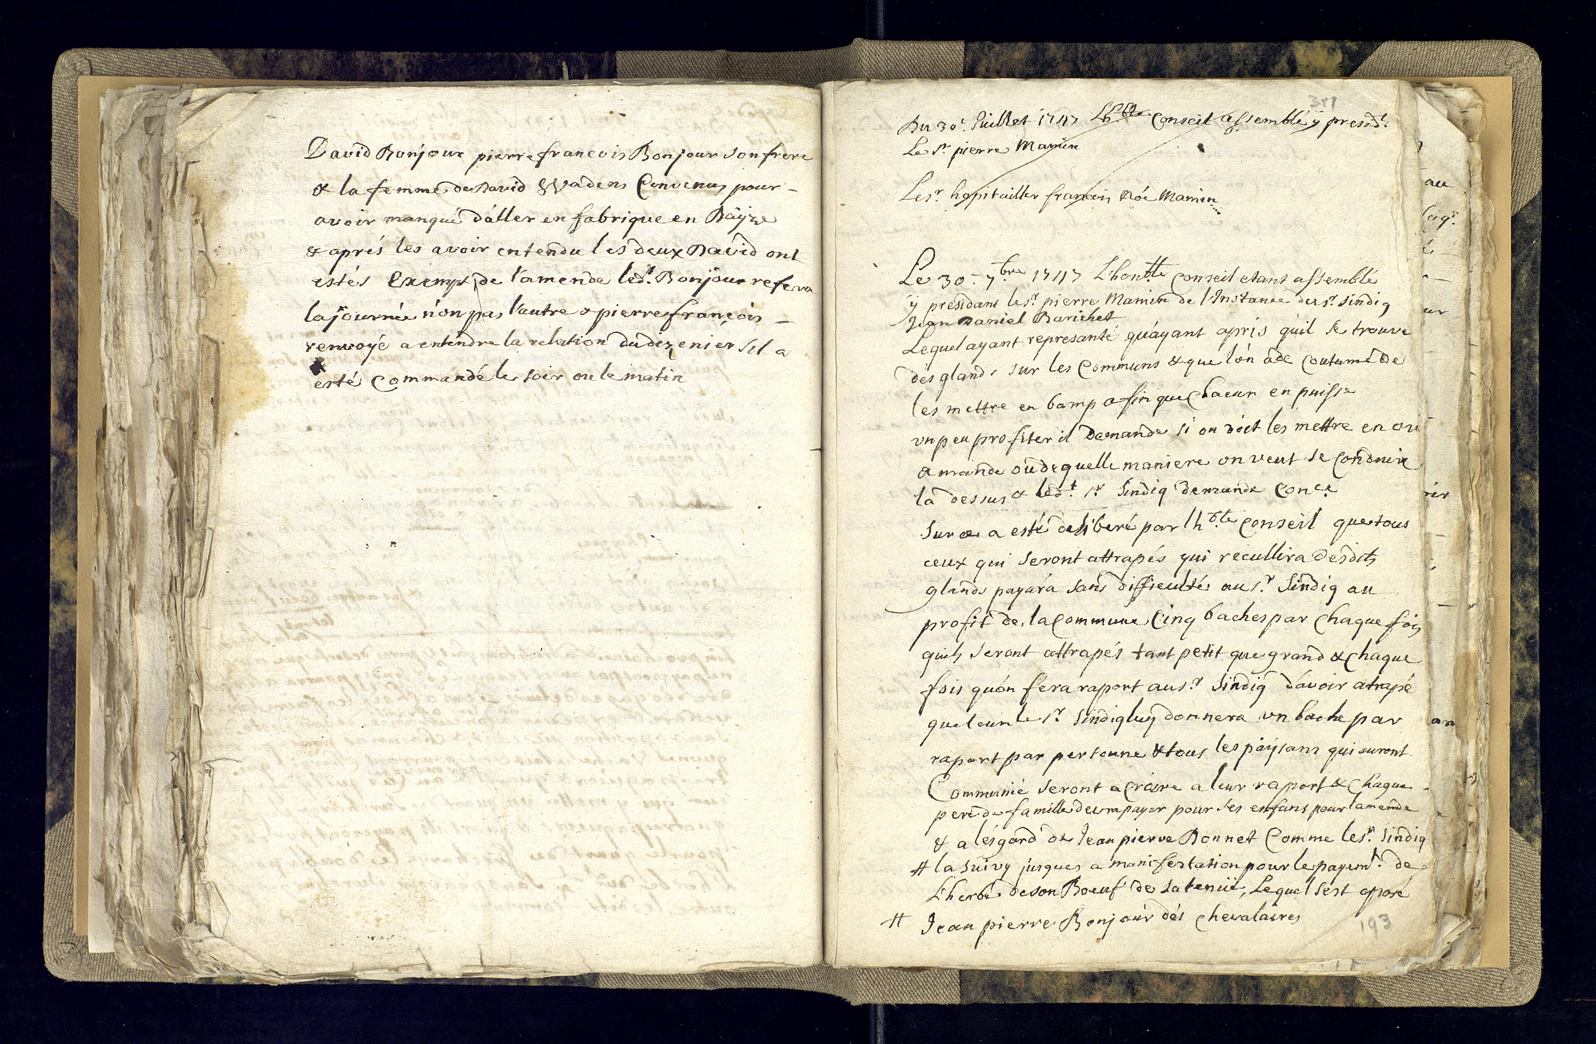 David Bonjour pierre francois Bonjour son frere
& la femme de David Wadens Convenus pour
avoir manqué d'aller en fabrique en Bäÿze
& aprés les avoir entendu les deux David ont
estés Exempt de l'amende led.t Bonjour refera
la journée n'on pas l'autre & pierre françois
renvoyé a entendre la relation du dizenier sil a
esté Commandé le soir ou le matin
387
Du 30.e Juillet 1747 Lhble Conseil assemblé ÿ presid.t
Le S.r pierre Mamin
Le s.r hopitailler francois Noé Mamin
Le 30.e 7.bre 1747 L'hon.ble Conseil etant assemblé
ÿ présidant le s.r pierre Mamin de l'Instance du s.r Sindiq
Jean Daniel Barichet
Lequel ayant representé qu'ayant apris q'uil se trouve
des glands sur les Communs & que l'on à de coutume De
les mettre en bamp afin que Chacun en puisse
vn peu profiter il demande si on doit les mettre en
& mande ou de quelle maniere on veut se conduire
là dessus & led.t s.r Sindiq demande Con.ce
Sur ce a esté deliberé par lh.ble Conseil que tous
ceux qui seront attrapés qui recullira desdits
glands payara sans difficulté au s.r Sindiq au
profit de la Commune Cinq baches par chaque fois
quils seront attrapés tant petit que grand & chaque
fois qu'on fera raport au s.r Sindiq d'avoir atrapé
quelcun le s.r Sindiq luy donnera vn bache par
raport par personne & tous les päÿsans qui auront
Communié seront a Croire a leur raport & chaque
pere de famille devra payer pour ses enfans pour lamende
& a lésgard de Jean pierre Bonnet Comme le s.r Sindiq
# la suivy jusques a manifestation pour le payem.t de
L'herbe de son Boeuf de la tenüe, Lequel s'est oposé
# Jean pierre Bonjour dés Chevalaires
193